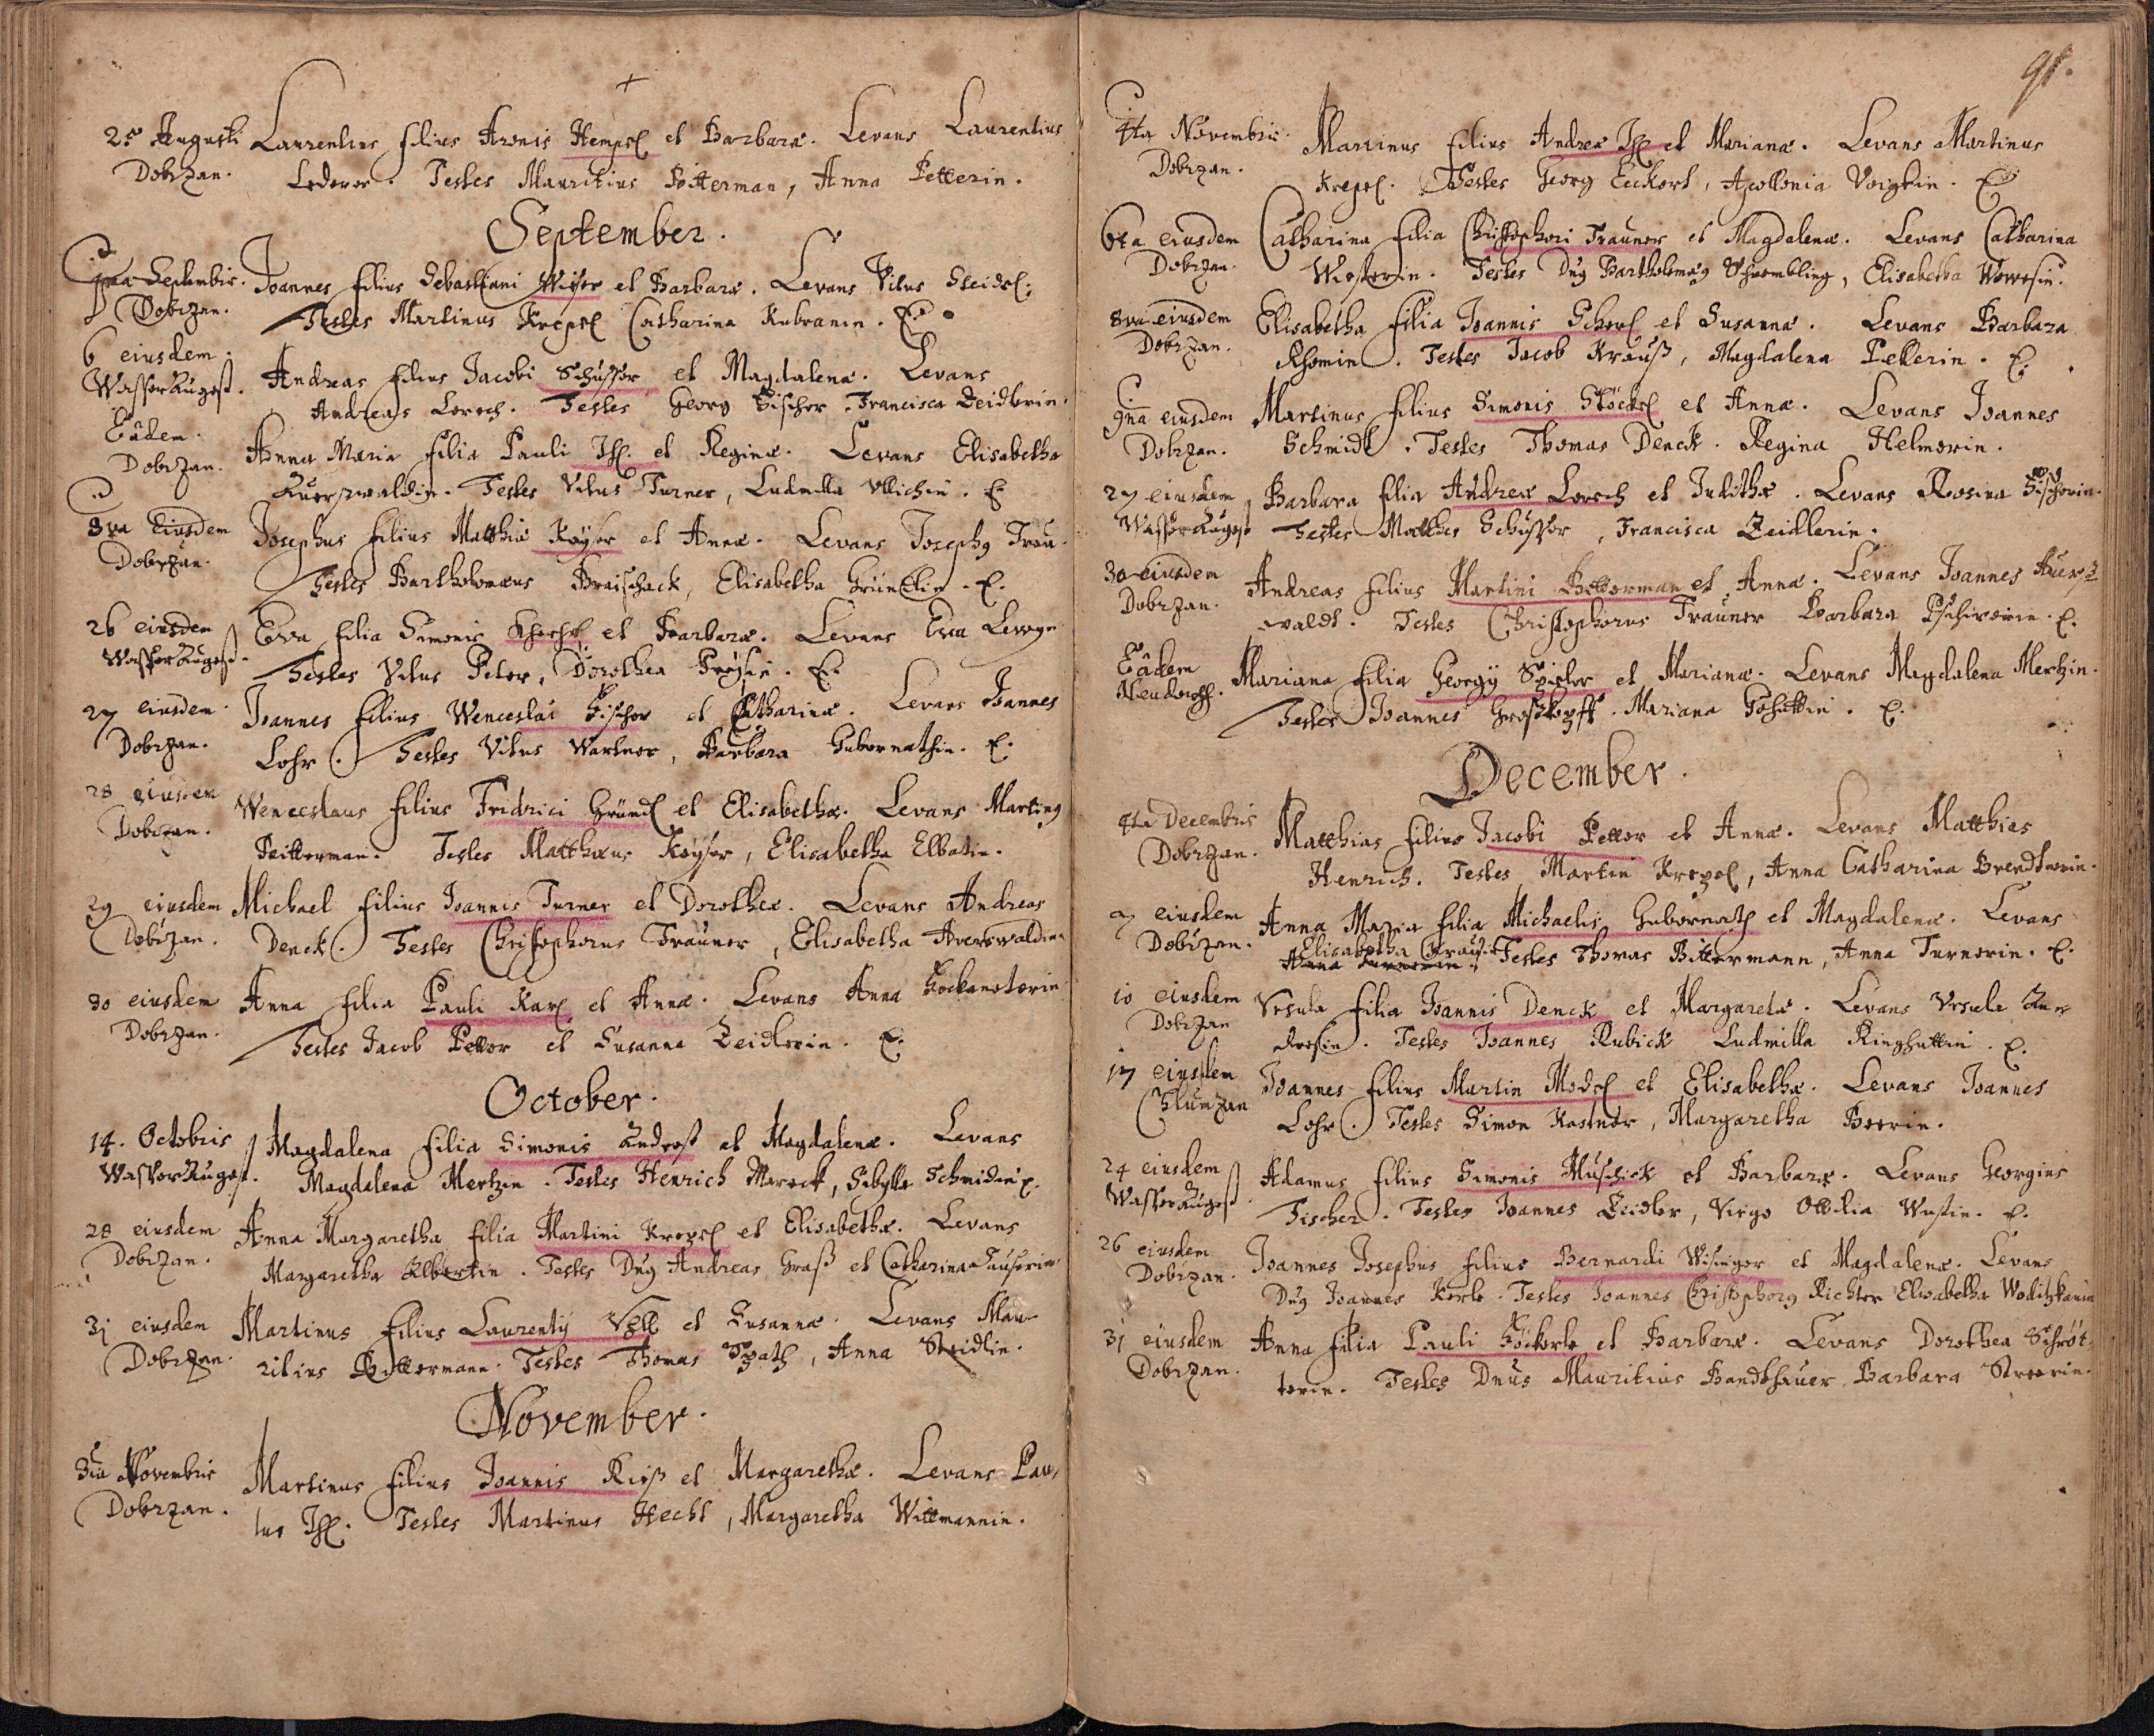 25 Augusti Laurentius filius Aronis Hempel et Barbaræ. Levans Laurentius
Dobrzan. Lederer. Testes Mauritius Bitterman, Anna Petterin.
September.
1ma Septembris. Joannes filius Sebastiani Wiser et Barbaræ. Levans Vitus Steidel:
Dobrzan. Testes Martinus Krepsl Catharina Kubranin. E.
6 eiusdem. Andreas filius Jacobi Schusser et Magdalenæ. Levans
Wasser Augest. Andreas Lorech. Testes Georg Fischer. Francisca Zeidlerin.
Eâdem. Anna Maria filia Pauli Ihl. et Reginæ. Levans Elisabetha
Dobrzan. Auerswaldin. Testes Vitus Turner, Ludmilla Ullichin. E
8va Eiusdem Josephus filius Matthiæ Kayser et Annæ. Levans Josephg Trau-
Dobrzan. Testes Bartholomæus Braischack, Elisabetha Gründlin. E.
26 eiusdem Eva filia Simonis et Barbaræ. Levans Eva
Wasser Augest. Testes Vitus Peter, Dorothea. E.
27 eiusdem. Joannes filius Wenceslai Fischer et Catharinæ. Levans Joannes
Dobrzan. Lohr. Testes Vitus Wartner, Barbara Gubernathin. E.
28 eiusdem Wenceslaus filius Fridrici Gründl et Elisabethæ. Levans Marting
Dobrzan. Bitterman. Testes Matthæus Kayser, Elisabetha Elbatin.
29 eiusdem Michael filius Joannis Turner et Dorotheæ. Levans Andreas
Dobrzan. Denck. Testes Christophorus Trauner, Elisabetha Averswaldin.
30 eiusdem Anna filia Pauli Karl et Annæ. Levans Anna
Dobrzan. Testes Jacob Petter et Susanna Zeidlerin. E.
October.
14. Octobris Magdalena filia Simonis Endres et Magdalenæ. Levans
Wasser Augest. Magdalena Mertzin. Testes Henrich Mareck, Sibylla Schmidin E.
28 eiusdem Anna Margaretha filia Martini Krepsl et Elisabethæ. Levans
Dobrzan. Margaretha Elbertin. Testes Dng Andreas Graß et Catharina Hauserin
31 eiusdem Martinus filius Laurentij et Susannæ. Levans Mau-
Dobrzan. ritius Bittermann. Testes Thomas Spath, Anna Steidlin.
November.
3tia Novembris Martinus filius Joannis Rieß et Margarethæ. Levans Pau-
Dobrzan. lus Ihl. Testes Martinus Hecht, Margaretha Wittmannin.
91.
4ta Novembris. Martinus filius Andreæ Ihl et Marianæ. Levans Martinus
Dobrzan. Krepsl. Testes Georg Eckert, Apollonia Voigtin. E
6ta eiusdem Catharina filia Christophori Trauner et Magdalenæ. Levans Catharina
Dobrzan. Testes Dng Bartholomæg Schrembling, Elisabetha Wowesin.
8va eiusdem Elisabetha filia Joannis Scherl et Susannæ. Levans Barbara
Dobrzan. Testes Jacob Krauß, Magdalena Petterin. E.
9na eiusdem Martinus filius Simonis Stöckel et Annæ. Levans Joannes
Dobrzan. Schmidt. Testes Thomas Denck. Regina Helmerin.
27 eiusdem Barbara filia Andreæ Lorech et Judithæ. Levans Rosina Fischerin.
Wasser Augest Testes Matthes Schusser, Francisca Zeidlerin.
30 eiusdem Andreas filius Martini Bitterman et Annæ. Levans Joannes Auers-
Dobrzan. waldt. Testes Christophorus Trauner Barbara. E.
Eâdem Mariana filia Georgij Spitler et Marianæ. Levans Magdalena Mertzin.
Neudorff. Testes Joannes Großkopff. Mariana. E.
December.
4ta Decembris Matthias filius Jacobi Petter et Annæ. Levans Matthias
Dobrzan. Henrich. Testes Martin Krepsl, Anna Catharina Brendtnerin.
7 eiusdem Anna Maria filia Michaelis Gubernath et Magdalenæ. Levans
Dobrzan. Elisabetha Krausin Testes Thomas Bittermann, Anna Turnerin. E.
10 eiusdem Vrsula filia Joannis Denck et Margaretæ. Levans Vrsula En-
Dobrzan dresin. Testes Joannes Kubick Ludmilla Ringhuttin. E.
17 eiusdem Joannes filius Martin Medel et Elisabethæ. Levans Joannes
Chlumzan Lohr. Testes Simon Kastner, Margaretha Beerin.
24 eiusdem Adamus filius Simonis Muschick et Barbaræ. Levans Georgius
Wasser Augest Fischer. Testes Joannes Zeidler, Virgo Ottilia Wustin. E.
26 eiusdem Joannes Josephus filius Bernardi Wisinger et Magdalenæ. Levans
Dobrzan. Dng Joannes Korb. Testes Joannes Christophorg Richter Elisabetha Woditzkanin
31 eiusdem Anna filia Pauli Köckert et Barbaræ. Levans Dorothea Schröt-
Dobrzan. terin. Testes Dnus Mauritius Bandthauer Barbara Streerin.